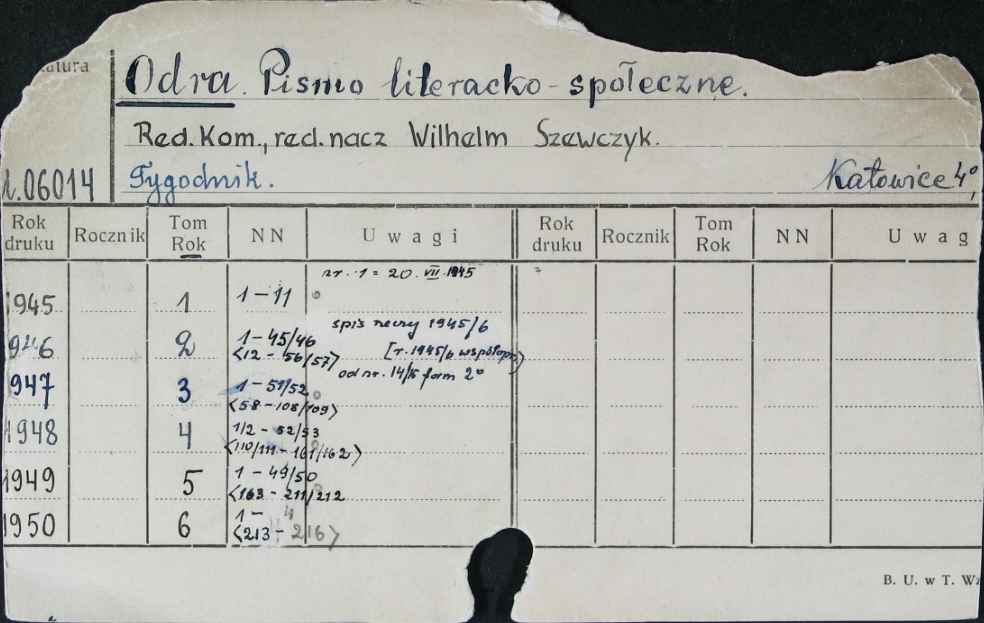 Odra. Pismo literacko-społeczne.
Red. Kom., red. nacz Wilhelm Szewczyk.
.06014 Tygodnik. Katowice 4°,
Rok druku Rocznik Tom Rok NN Uwagi Rok druku Rocznik Tom Rok NN Uwag
nr. 1 = 20. VII 1945
1945 1 1-11
spis rzeczy 1945/6
1946 2 1-45/46
<12-56/57> [r. 1945/6 współopr.)
od nr. 14/15 form 2°
1947 3 1-51/52
<58-108/109>
1948 4 1/2-52/53
<110/111-161/162>
1949 5 1-49/50
<163-211/212
1950 6 1-4
<213-216>
B. U. w T.